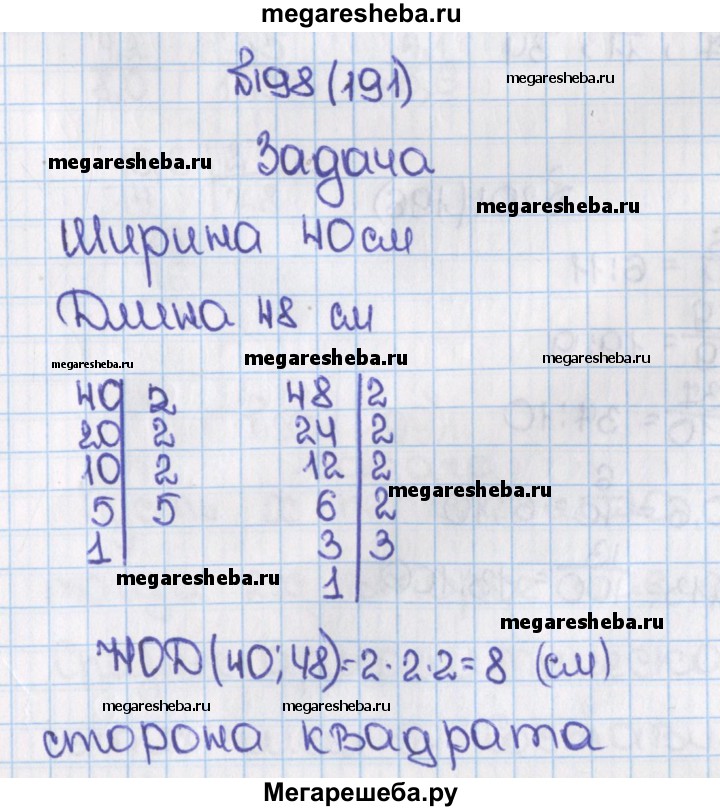 megaresheba.ru
№198 (191)
megaresheba.ru
megaresheba.ru
Задача
megaresheba.ru
Ширина 40 см
Длина 48 см
megaresheba.ru
megaresheba.ru
megaresheba.ru
40 | 2 48 | 2
20 | 2 24 | 2
10 | 2 12 | 2
megaresheba.ru
5 | 5 6 | 2
1 | 3 | 3
megaresheba.ru
1 |
megaresheba.ru
НОД (40; 48) = 2 · 2 · 2 = 8 (см)
megaresheba.ru
megaresheba.ru
сторона квадрата
Мегарешеба.ру